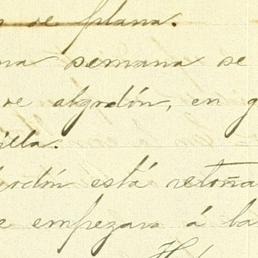 de plana.
na semana se
de algodón, en g
illa.
godón está retoña
e empezara á ba